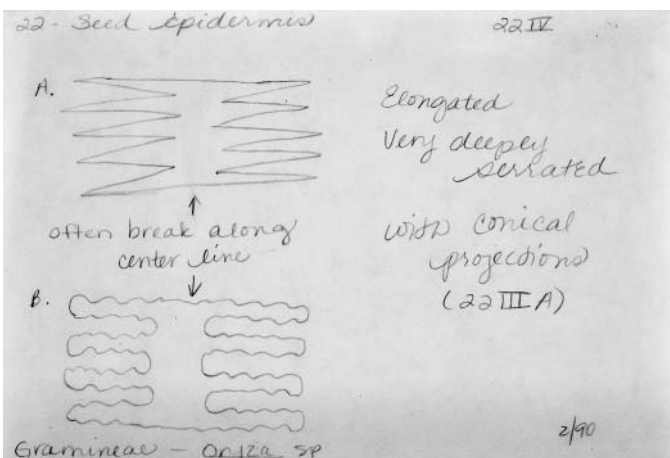 22 - Seed Epidermis
22 IV
A.
Elongated
Very deeply
serrated
often break along
center line
with conical
projections
(22 III A)
B.
2/90
Gramineae - Oriza sp